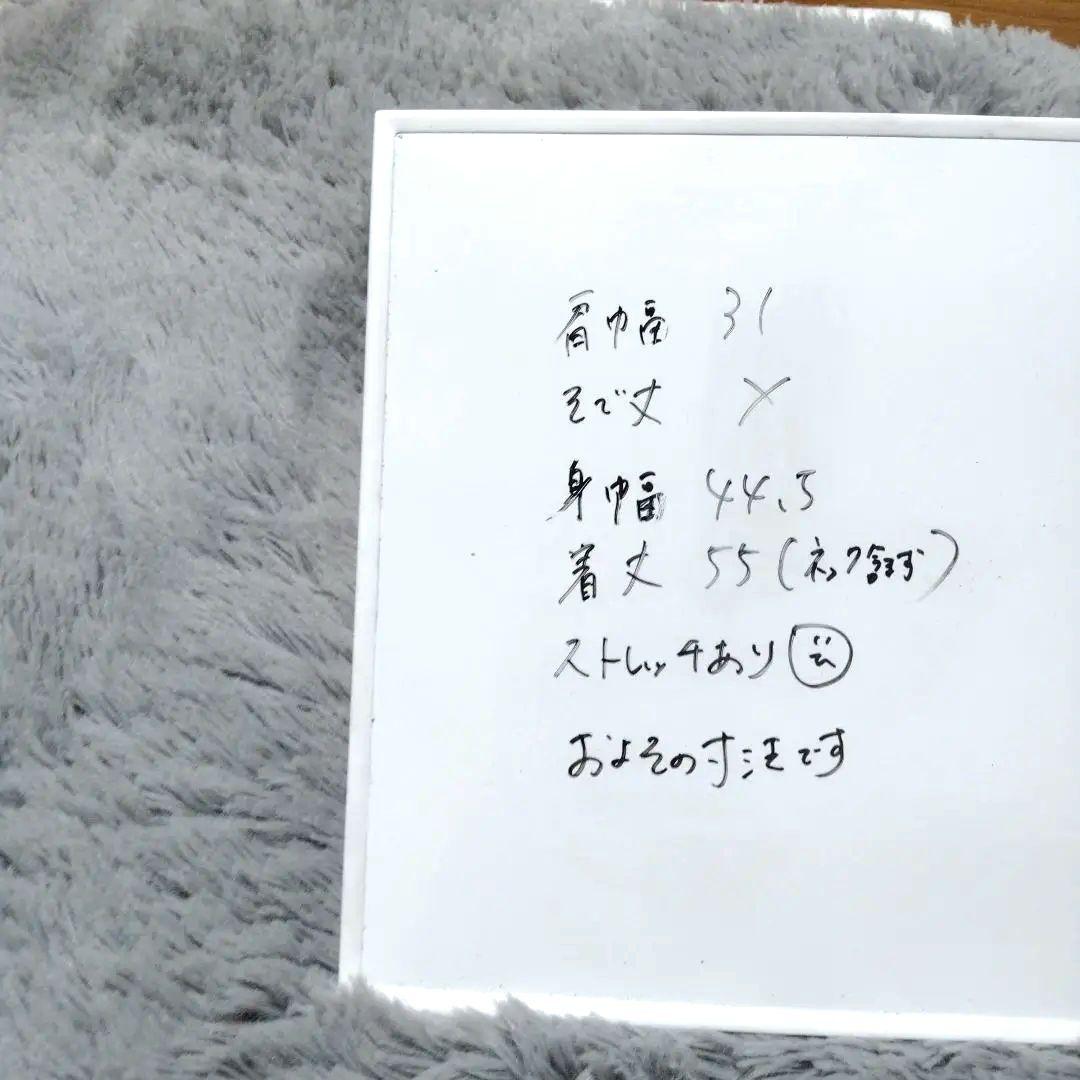 肩巾幅 31
そで丈 ×
身巾幅 44.5
着丈 55(ネック含まず)
ストレッチあり
およその寸法です